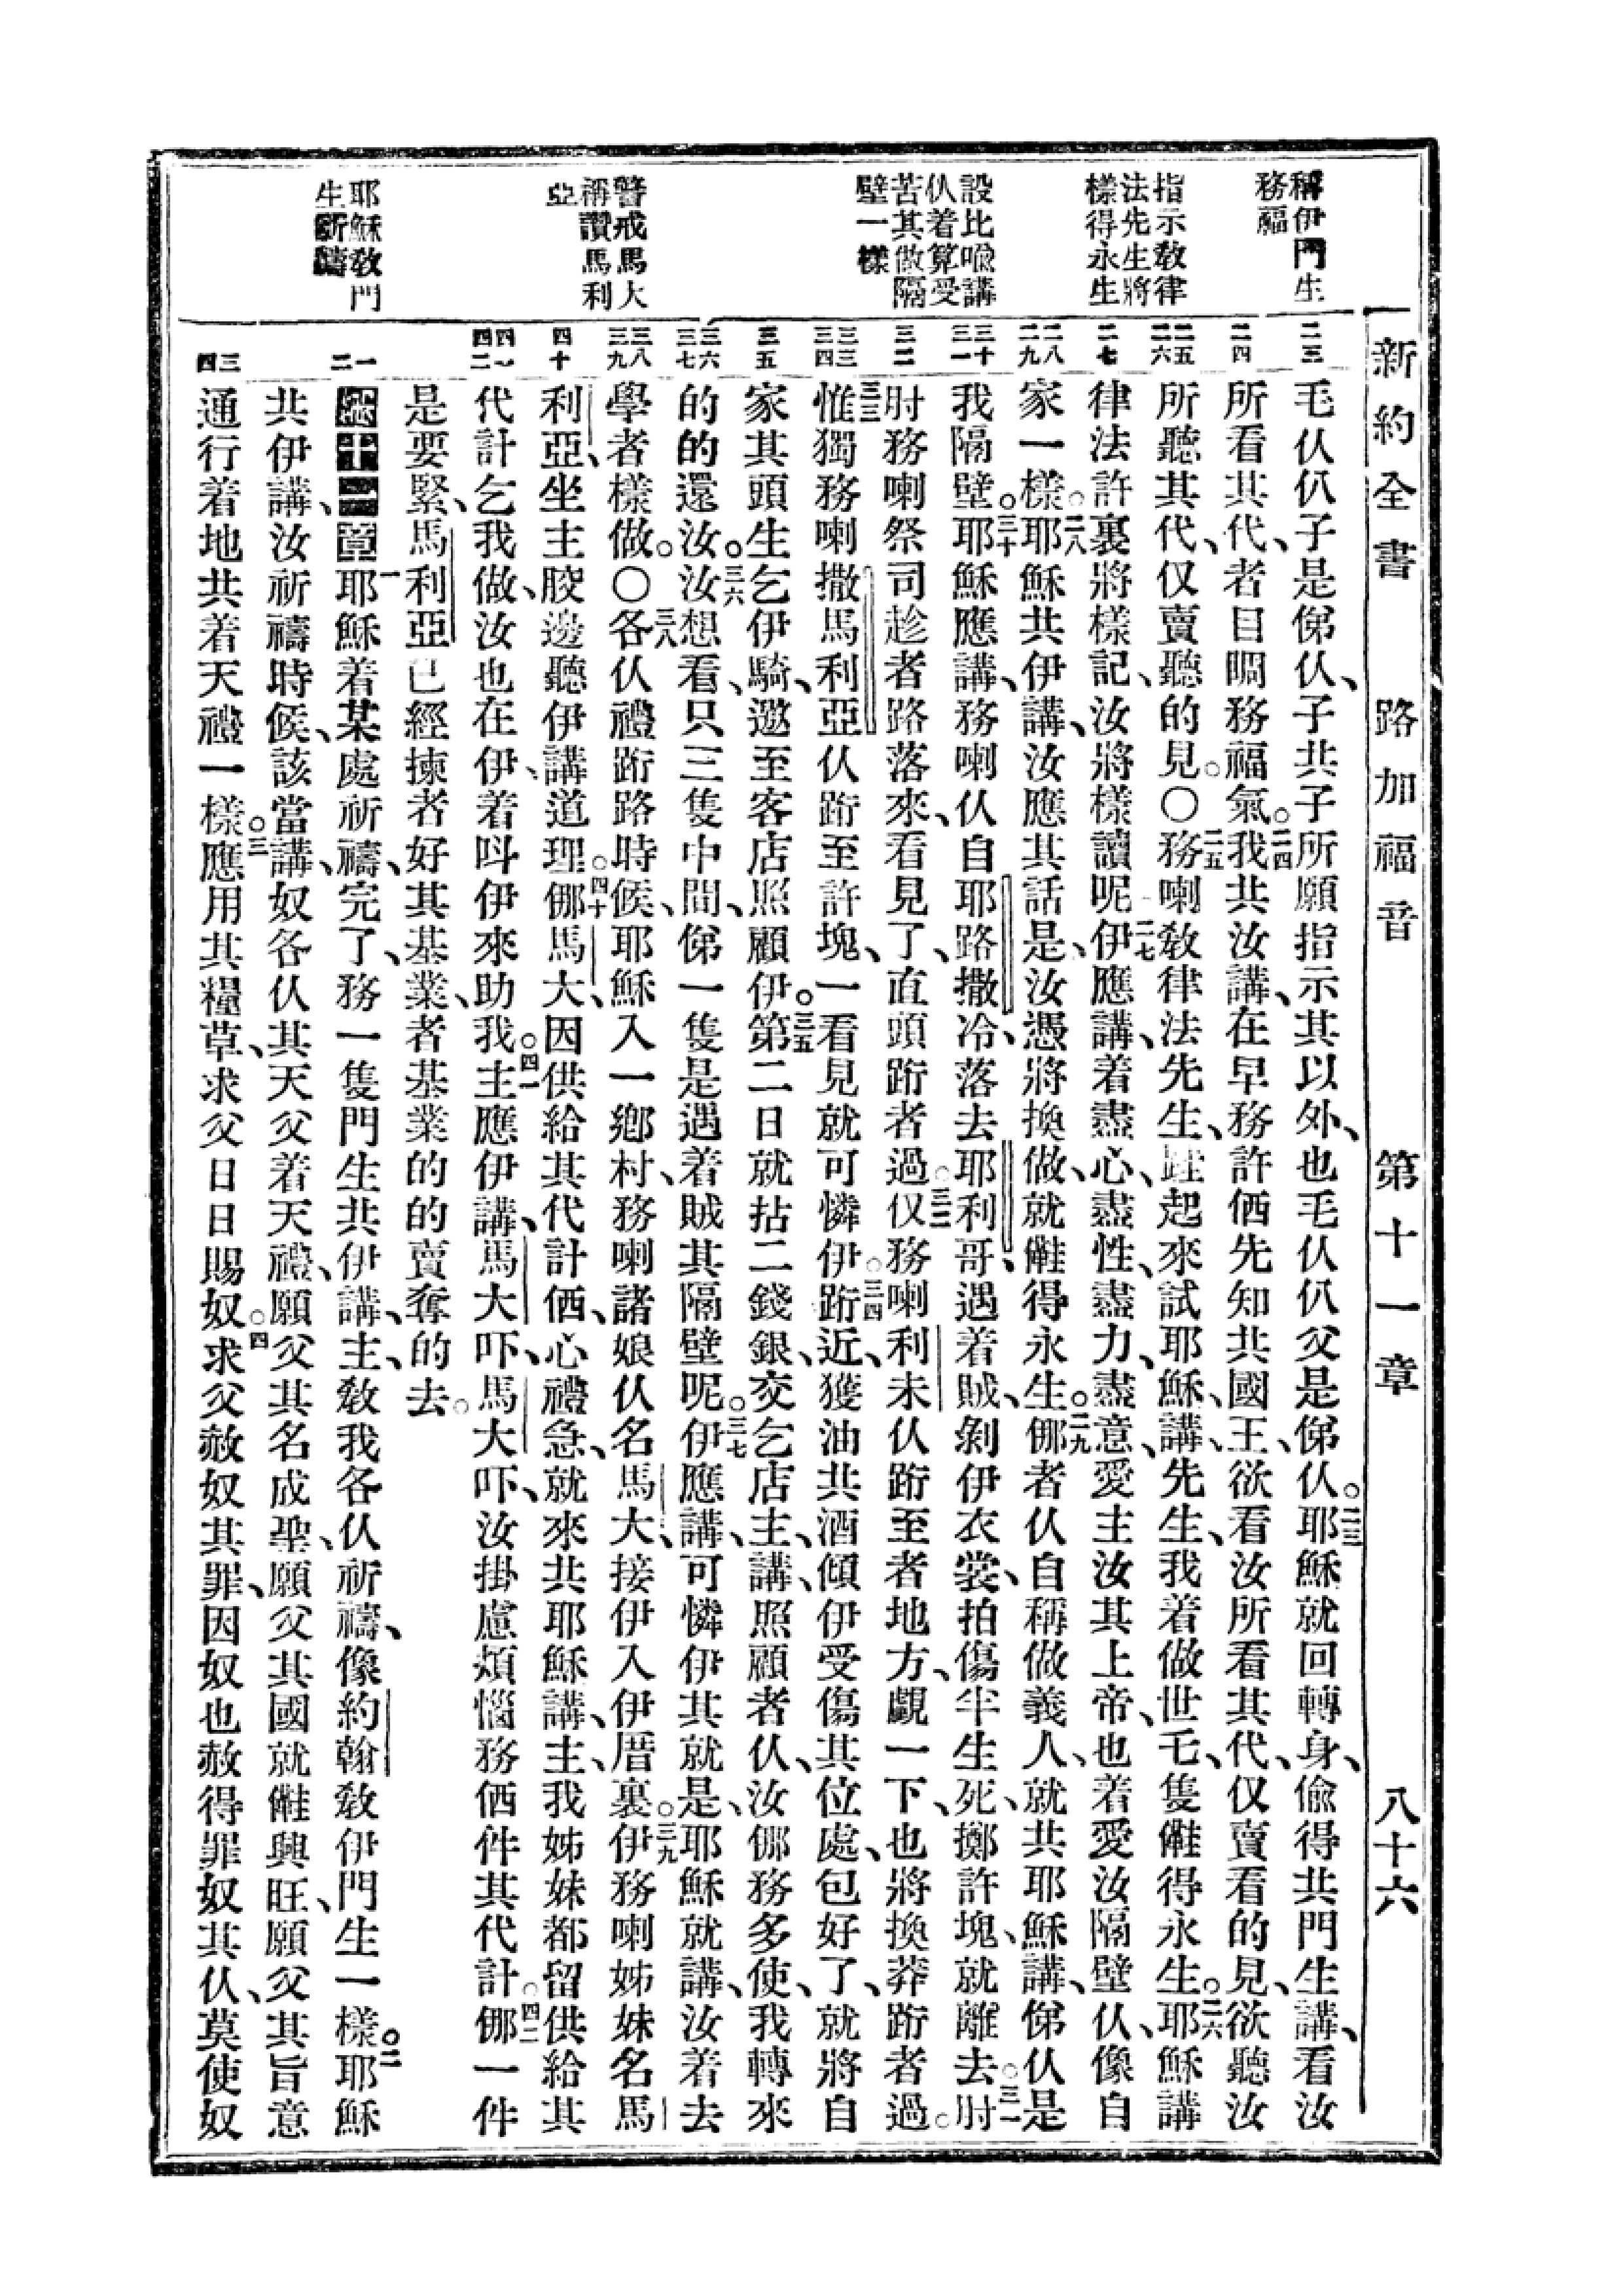 新約全書 路加福音 第十一章 八十六
稱伊門生
務福
指示教律
法先生將
樣得永生
設比喻講
仈着算受
苦其做隔
壁一樣
警戒馬大
稱讚馬利
亞
耶穌教門
生祈禱
二三
二四
二五
二六
二七
二八
二九
三十
三一
三二
三三
三四
三五
三六
三七
三八
三九
四十
四一
四二
一
二
三
四
毛仈仈子是俤仈、子共子所願指示其以外、也毛仈仈父是俤仈。二三耶穌就回轉身、偷得共門生講、看汝
所看其代、者目睭務福氣。二四我共汝講、在早務許㐔先知共國王、欲看汝所看其代、仅賣看的見、欲聽汝
所聽其代、仅賣聽的見。〇二五務喇教律法先生、跮起來試耶穌、講、先生、我着做世乇、隻儺得永生。二六耶穌講
律法許裏將樣記、汝將樣讀呢、二七伊應講、着盡心、盡性、盡力、盡意、愛主汝其上帝、也着愛汝隔壁仈、像自
家一樣。二八耶穌共伊講、汝應其話是、汝憑將換做、就儺得永生。二九㑚者仈自稱做義人、就共耶穌講、俤仈是
我隔壁。三十耶穌應講、務喇仈自耶路撒冷、落去耶利哥、遇着賊、剝伊衣裳、拍傷半生死、擲許塊、就離去。三一肘
肘務喇祭司趁者路落來、看見了、直頭跨者過。三二仅務喇利未仈跨至者地方、覷一下、也將換莽跨者過。
三三惟獨務喇撒馬利亞仈跨至許塊、一看見就可憐伊。三四跨近、獲油共酒、傾伊受傷其位處、包好了、就將自
家其頭生乞伊騎、邀至客店照顧伊。三五第二日就拈二錢銀、交乞店主、講、照顧者仈、汝㑚務多使、我轉來
的的還汝。三六汝想看、只三隻中間、俤一隻是遇着賊其隔壁呢。三七伊應講、可憐伊其就是、耶穌就講、汝着去
學者樣做。〇三八各仈禮跨路時候、耶穌入一鄉村、務喇諸娘仈名馬大、接伊入伊厝裏。三九伊務喇姊妹名馬
利亞、坐主骹邊聽伊講道理。四十㑚馬大、因供給其代計㐔、心禮急、就來共耶穌講、主、我姊妹都留供給其
代計乞我做、汝也在伊、着叫伊來助我。四一主應伊講、馬大吓、馬大吓、汝掛慮煩惱務㐔件其代計。四二㑚一件
是要緊、馬利亞已經揀者好其基業、者基業的的賣奪的去。
第十一章 一耶穌着某處祈禱、完了、務一隻門生共伊講、主、教我各仈祈禱、像約翰教伊門生一樣。二耶穌
共伊講、汝祈禱時候、該當講、奴各仈其天父着天禮、願父其名成聖、願父其國就儺興旺、願父其旨意
通行着地共着天禮一樣。三應用其糧草、求父日日賜奴。四求父赦奴其罪、因奴也赦得罪奴其仈、莫使奴